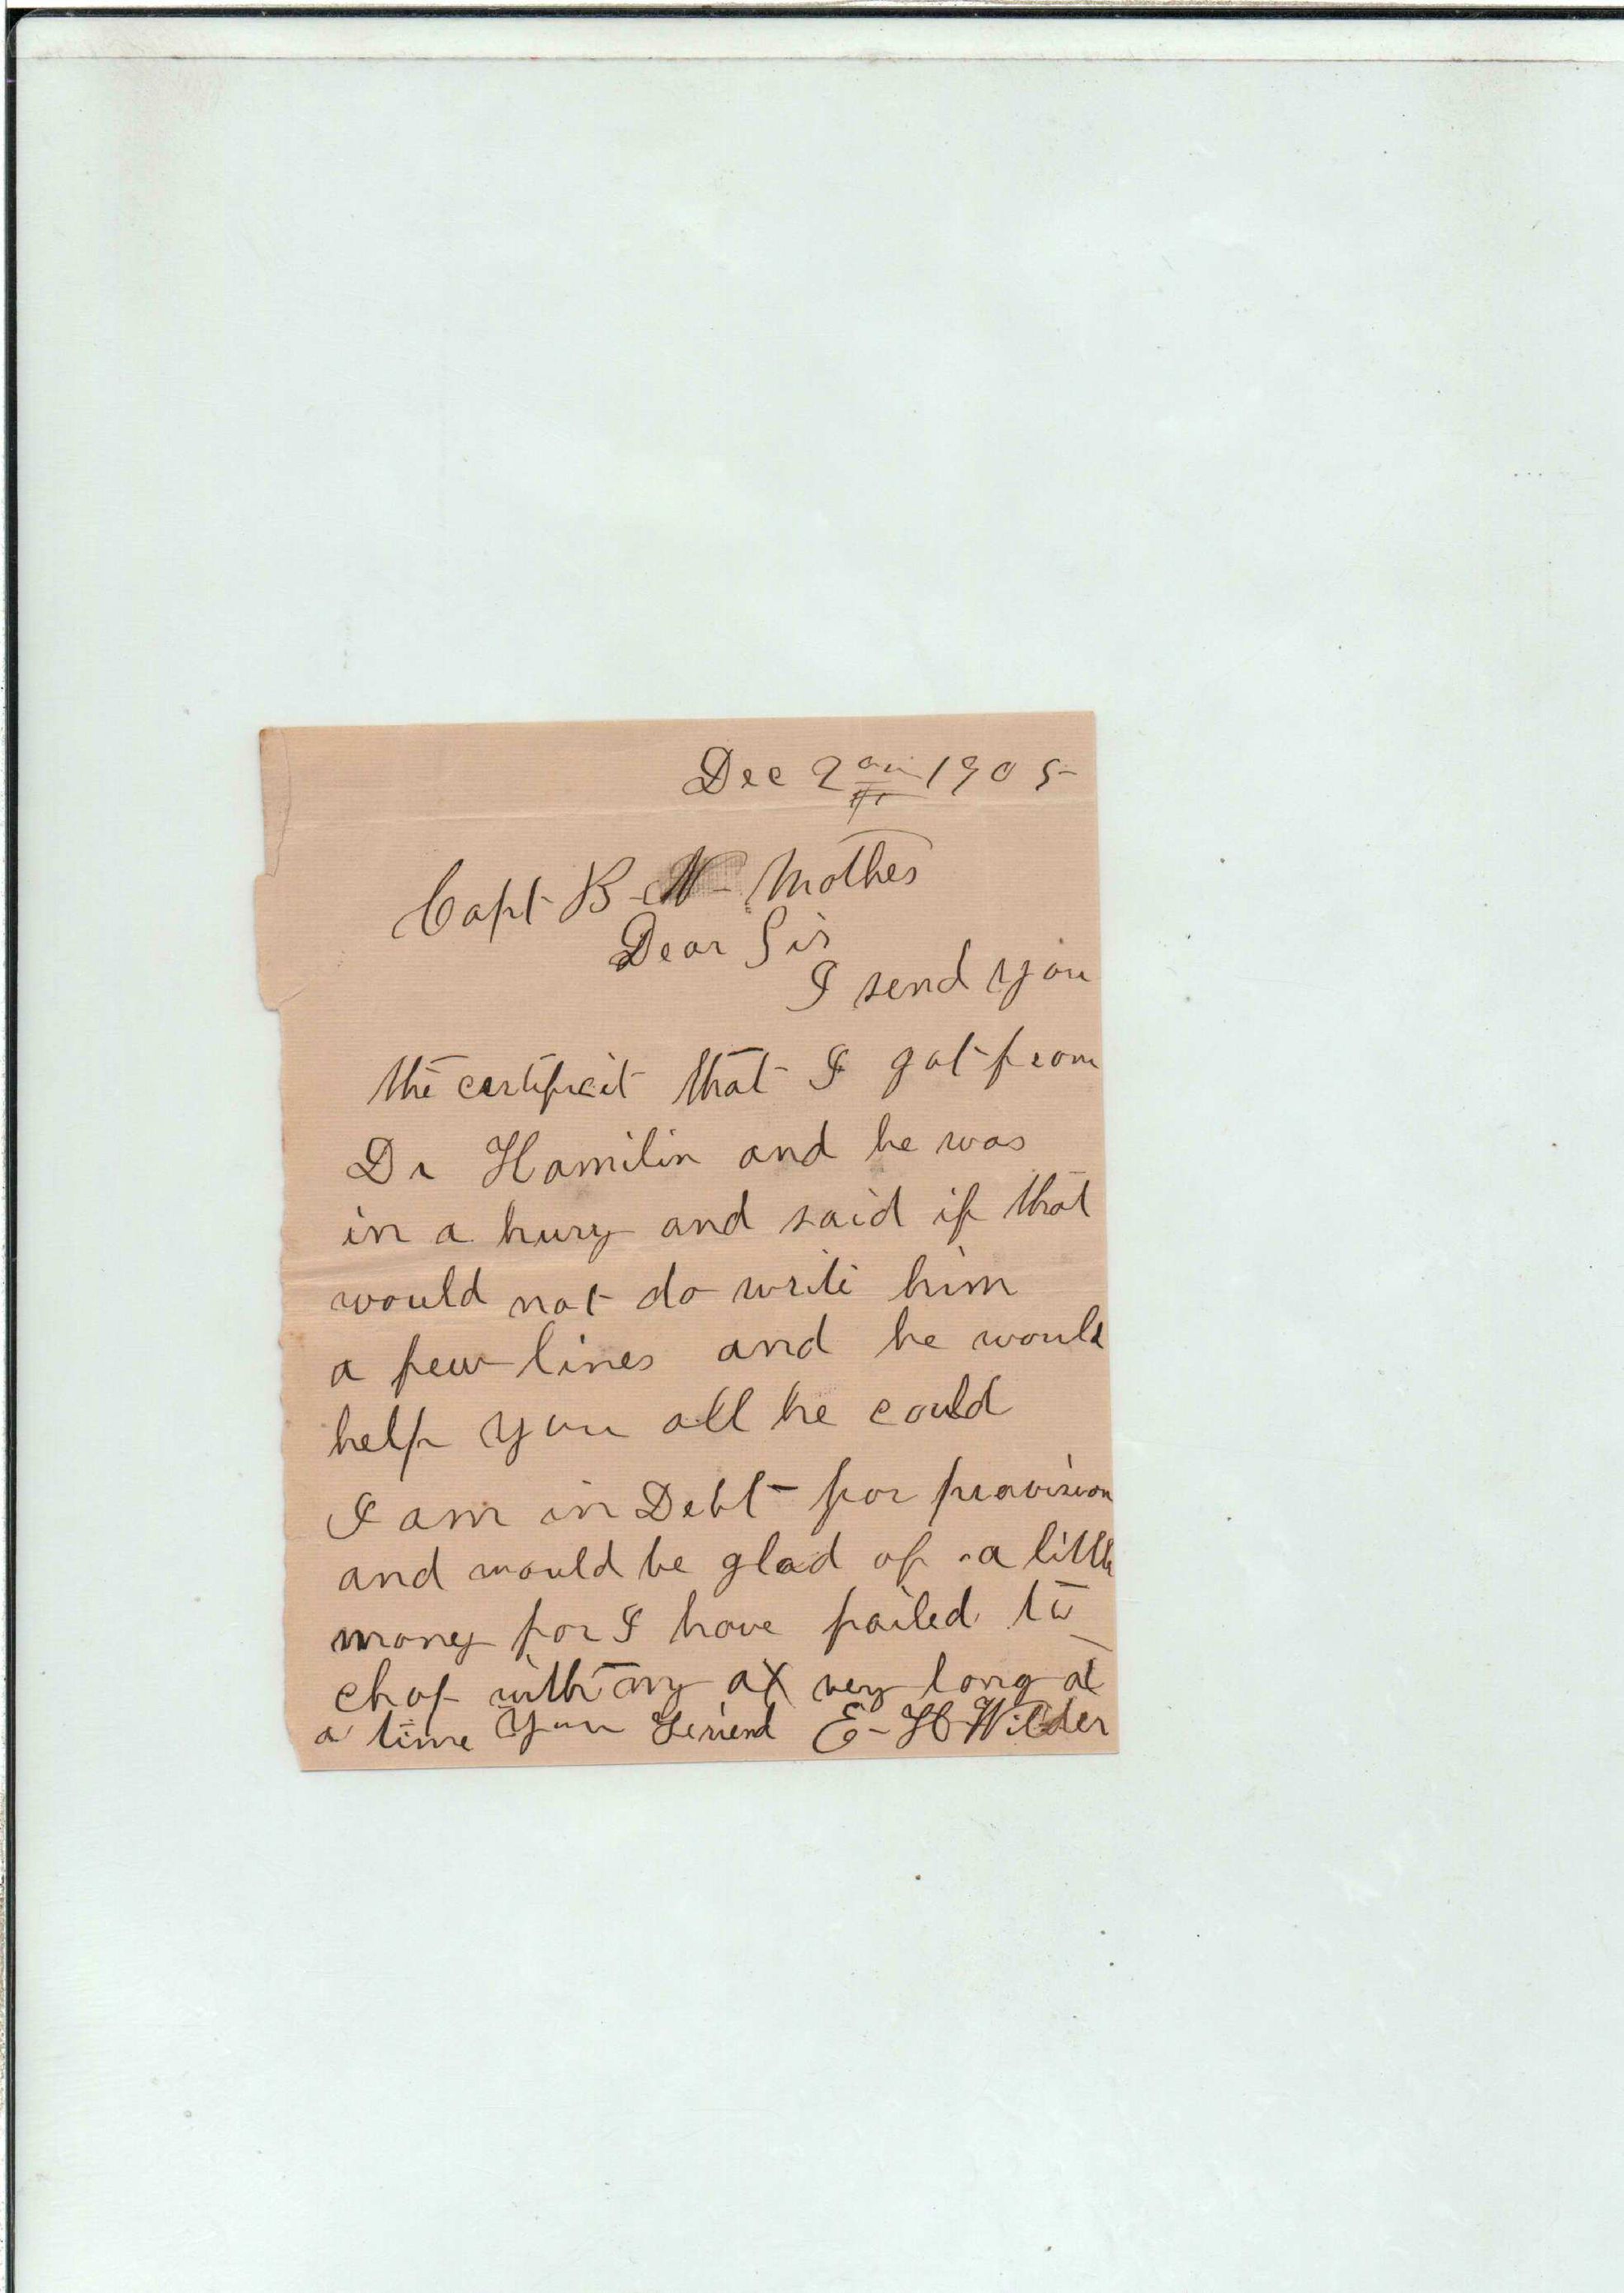 Dec 2 1905
Capt B Mothes
Dear Sir
I send you
the certificit that I got from
Dr Hamilin and he was
in a hury and said if that
would not do write him
a few lines and he would
help you all he could
I am in Debt for provision
and would be glad of a little
money for I have failed to
chop with my ax very long at
a time your Feriend E-H Wilder